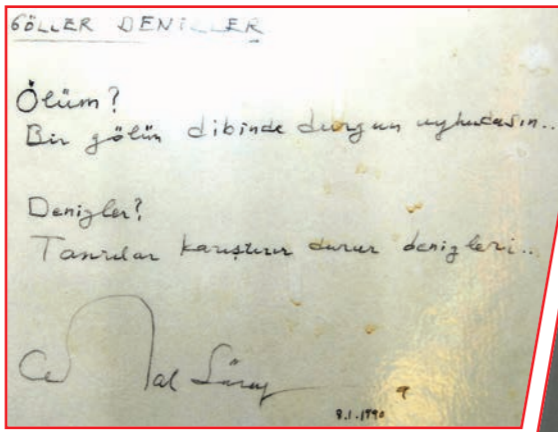 GÖLLER DENİZLER
Ölüm?
Bir gölün dibinde durgun uykudasın..
Denizler?
Tanrılar karıştırır durur denizleri..
Cemal Süreya
9.1.1990